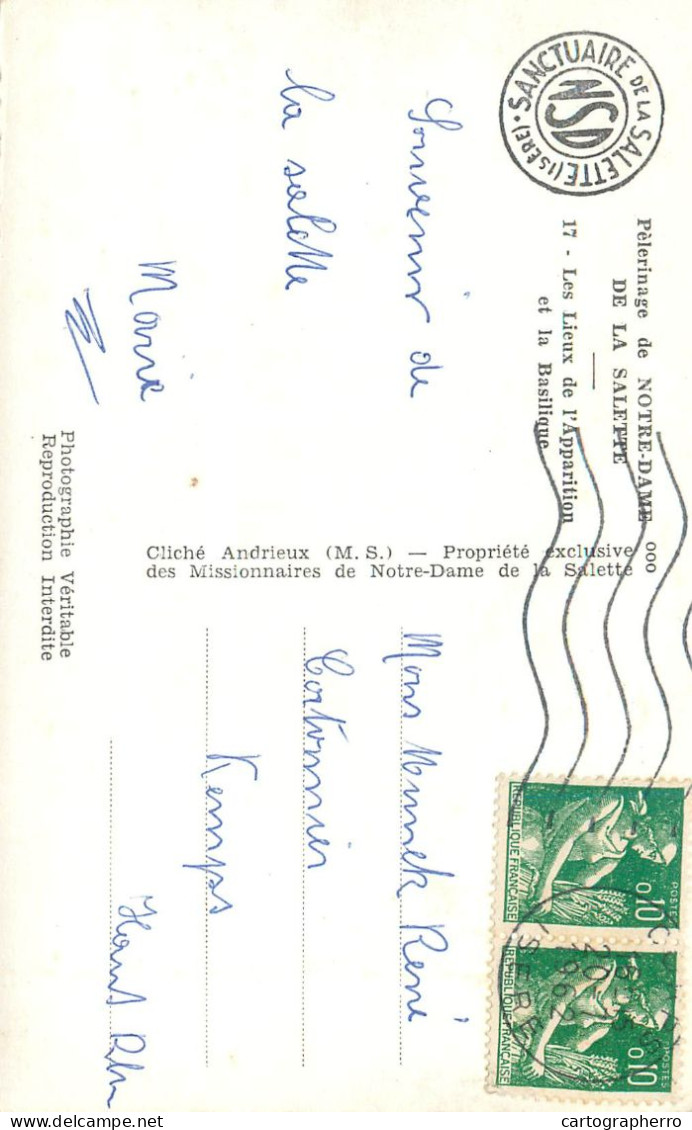 SANCTUAIRE DE LA SALETTE (ISÈRE) •
NSD
Pèlerinage de NOTRE-DAME
DE LA SALETTE
000
17 - Les Lieux de l'Apparition
et la Basilique
Souvenir de
la salette
Marie
Photographie Véritable
Reproduction Interdite
Cliché Andrieux (M. S.) — Propriété exclusive
des Missionnaires de Notre-Dame de la Salette
Mons Munck René
Kemps
Haut Rhin
REPUBLIQUE FRANÇAISE
POSTES
0,10
REPUBLIQUE FRANÇAISE
POSTES
0,10
ISERE
cartographerro